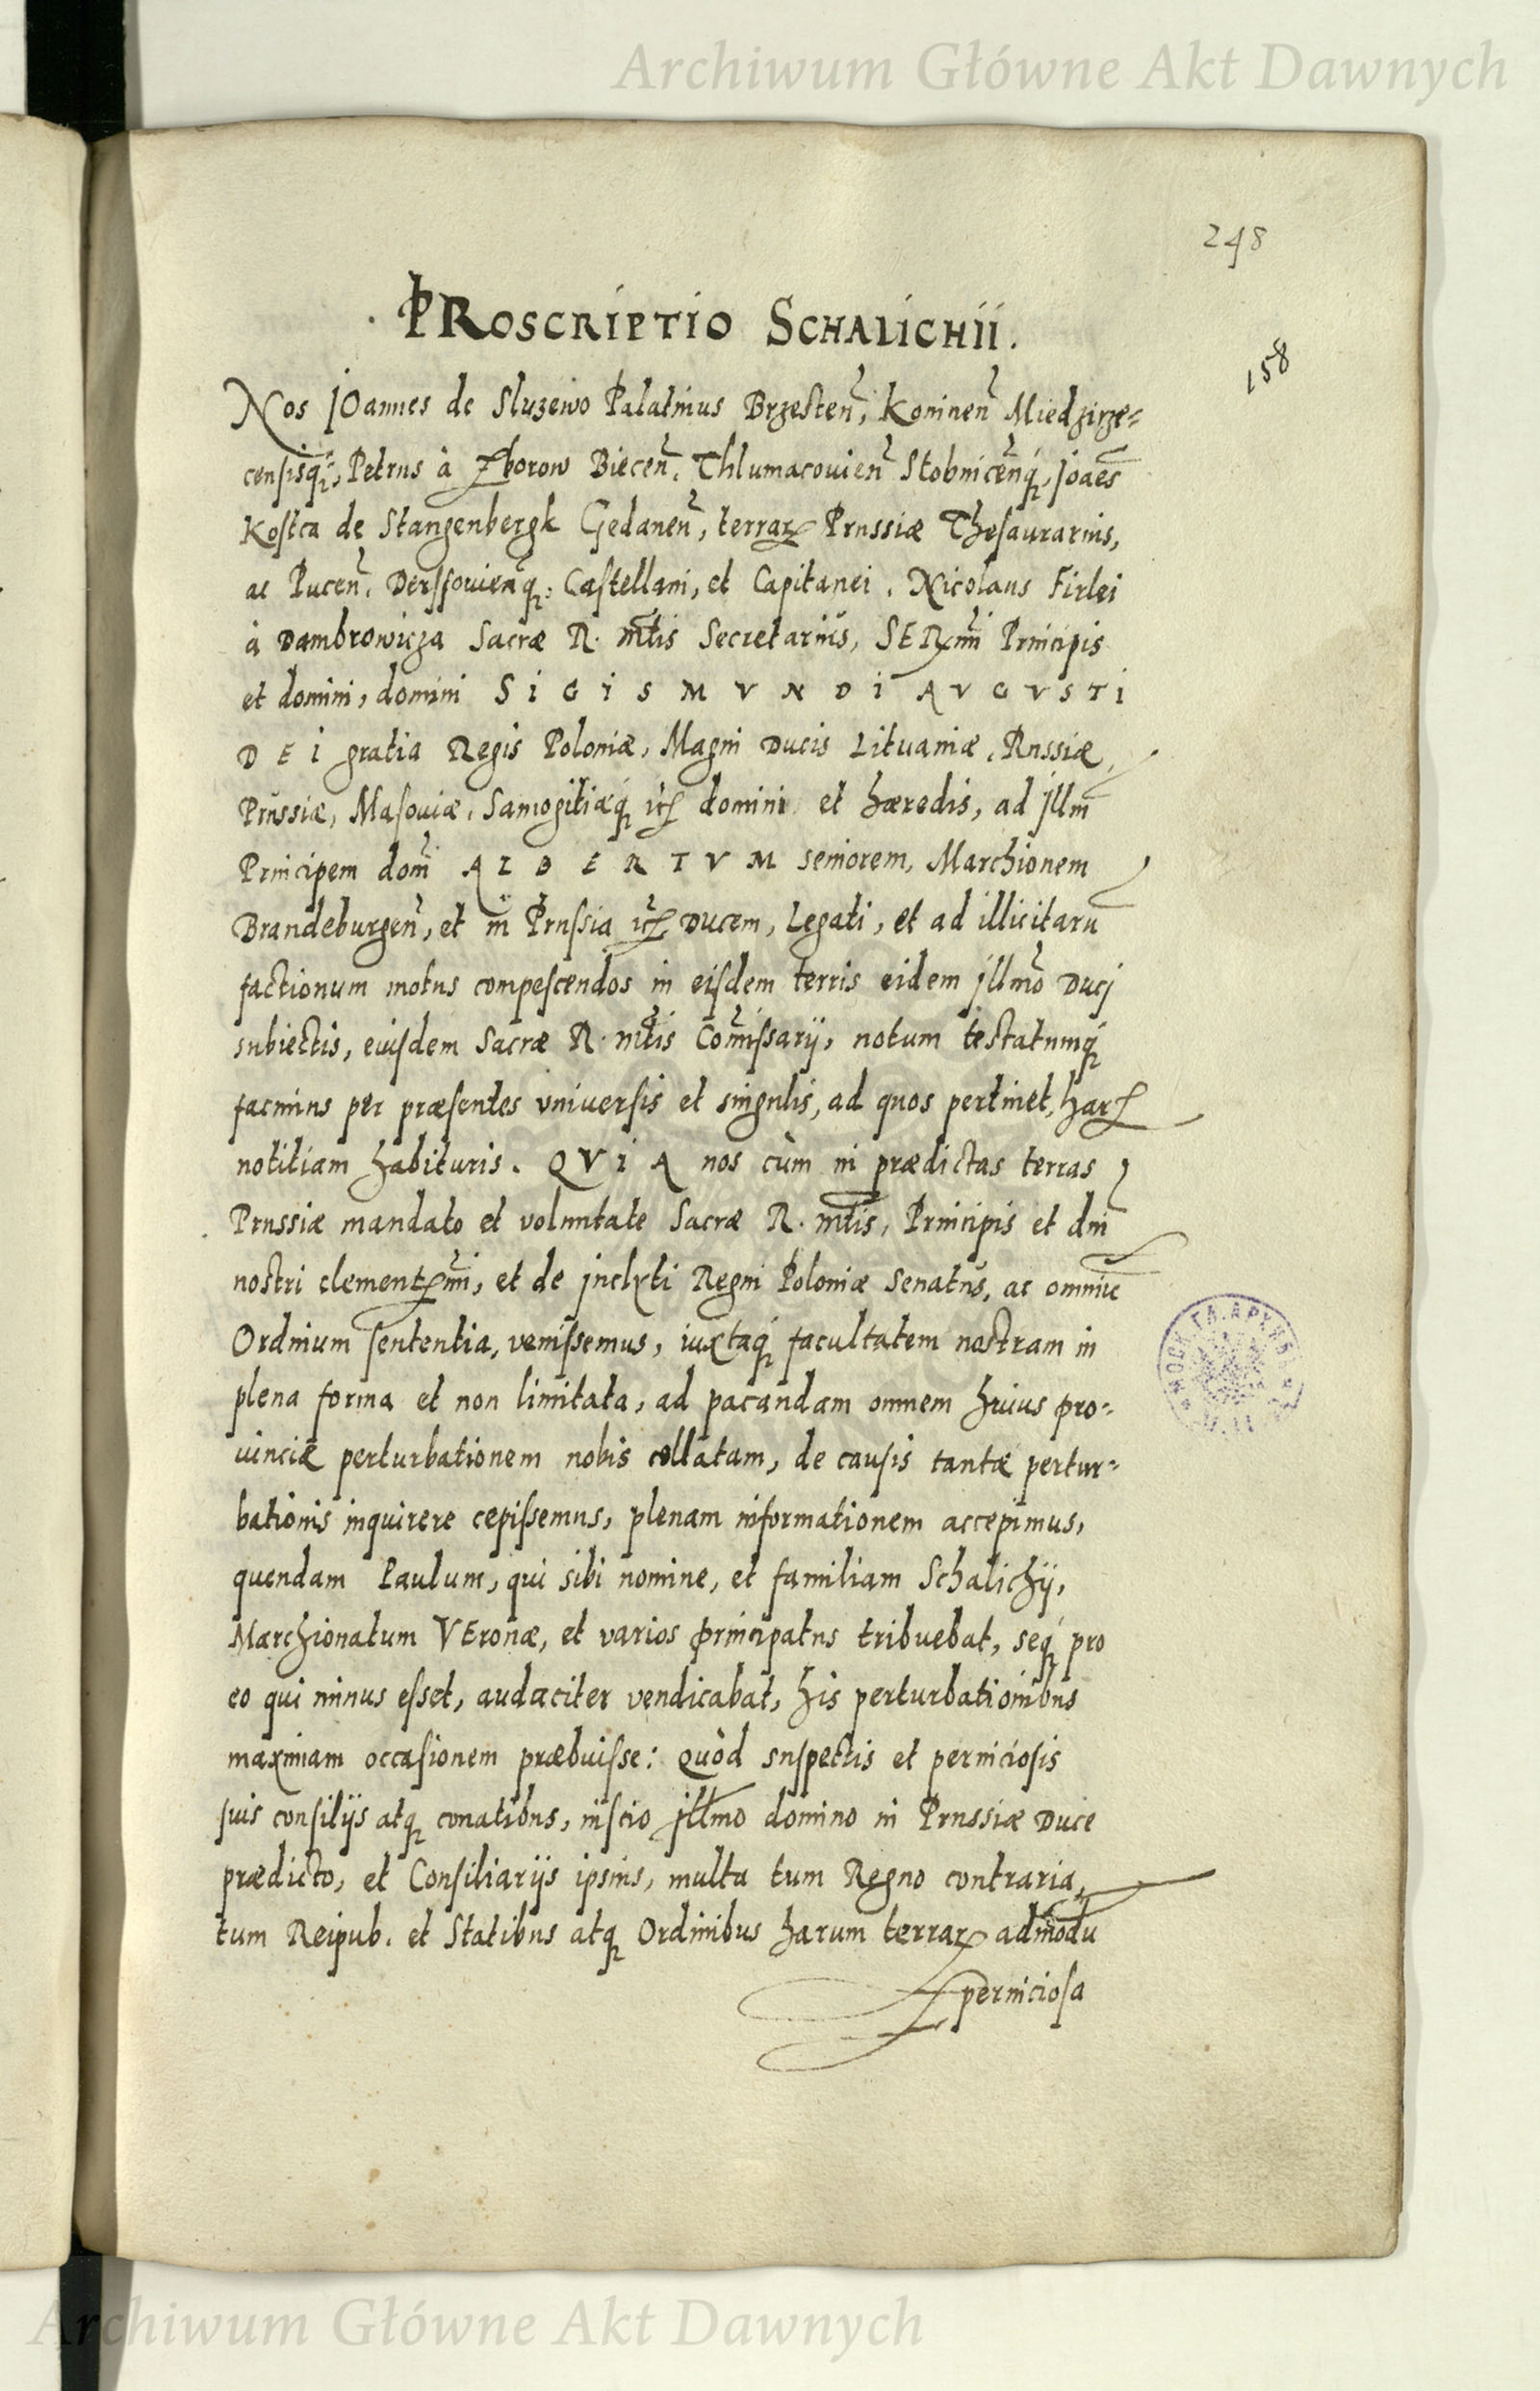 Archiwum Główne Akt Dawnych
248
158
PROSCRIPTIO SCHALICHII.
Nos IOannes de Sluzewo Palatinus Brzesten̄, Koninen̄ Miedzirze=
censisq́;, Petrus à Zborow Biecen̄. Thlumacouien̄ Stobnicen̄q́, Joaēs
Kostca de Stangenbergk Gedanen̄, terrarꝝ Prussiæ Thesaurarius,
ac Pucen̄. Derssouien̄q́: Castellani, et Capitanei. Nicolaus Firlei
à Dambrowicza Sacræ R. mt̄is Secretarius, SERmī Principis
et domini, domini SIGISMVNDI AVGVSTI
DEI gratia Regis Poloniæ, Magni Ducis Lituaniæ, Russiæ,
Prussiæ, Masouiæ, Samogitiæq́ ꝛc̄ domini et hæredis, ad Jllm̄
Principem dom̄ ALBERTVM seniorem, Marchionem
Brandeburgen̄, et in Prussia ꝛc̄ Ducem, Legati, et ad illicitarū
factionum motus compescendos in eisdem terris eidem Jllmō Ducj
subiectis, eiusdem Sacræ R. mt̄is Com̄issarij, notum testatumq́
facimus per præsentes vniuersis et singulis, ad quos pertinet, harꝝ
notitiam habituris. QVIA nos cùm in prædictas terras
Prussiæ mandato et voluntate Sacræ R. mt̄is, Principis et dn̄i
nostri clementꝝmī, et de jnclyti Regni Poloniæ Senatus, ac omniū
Ordinum sententia, venissemus, iuxtaq́ facultatem nostram in
plena forma et non limitata, ad pacandam omnem huius pro=
uinciæ perturbationem nobis collatam, de causis tantæ pertur=
bationis inquirere cepissemus, plenam informationem accepimus,
quendam Paulum, qui sibi nomine, et familiam Schalichij,
Marchionatum VEronæ, et varios principatus tribuebat, seq́ pro
eo qui minus esset, audaciter vendicabat, his perturbationibus
maximam occasionem præbuisse: Quòd suspectis et perniciosis
suis consilijs atq́ conatibus, inscio jllmo domino in Prussiæ Duce
prædicto, et Consiliarijs ipsius, multa tum Regno contraria,
tum Reipub. et Statibus atq́ Ordinibus harum terrarꝝ admodū
perniciosa
Archiwum Główne Akt Dawnych